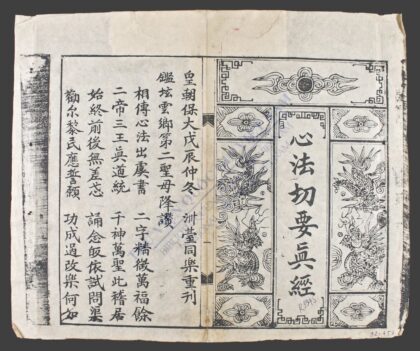 心法切要眞經
皇朝保大戊辰仲冬 同樂重刊
雲鄉第二聖母降讚
相傳心法出虞書 二字精微萬福餘
二帝三王眞道統 千神萬聖此稽居
始終前後無差忒 誦念皈依試問渠
勸尔黎民應誓願 功成過改樂何如